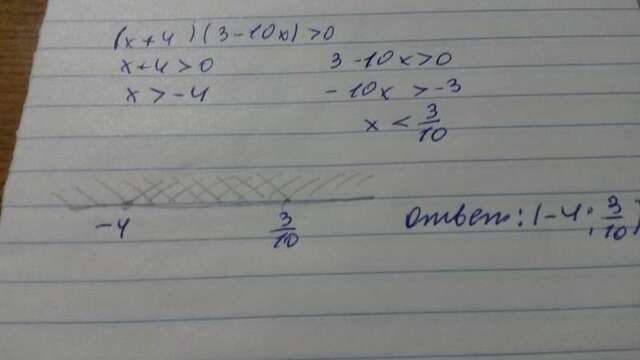 (x+4)(3-10x)>0
x+4>0 3-10x>0
x>-4 -10x>-3
x<3/10
-4 3/10 Ответ: (-4; 3/10)